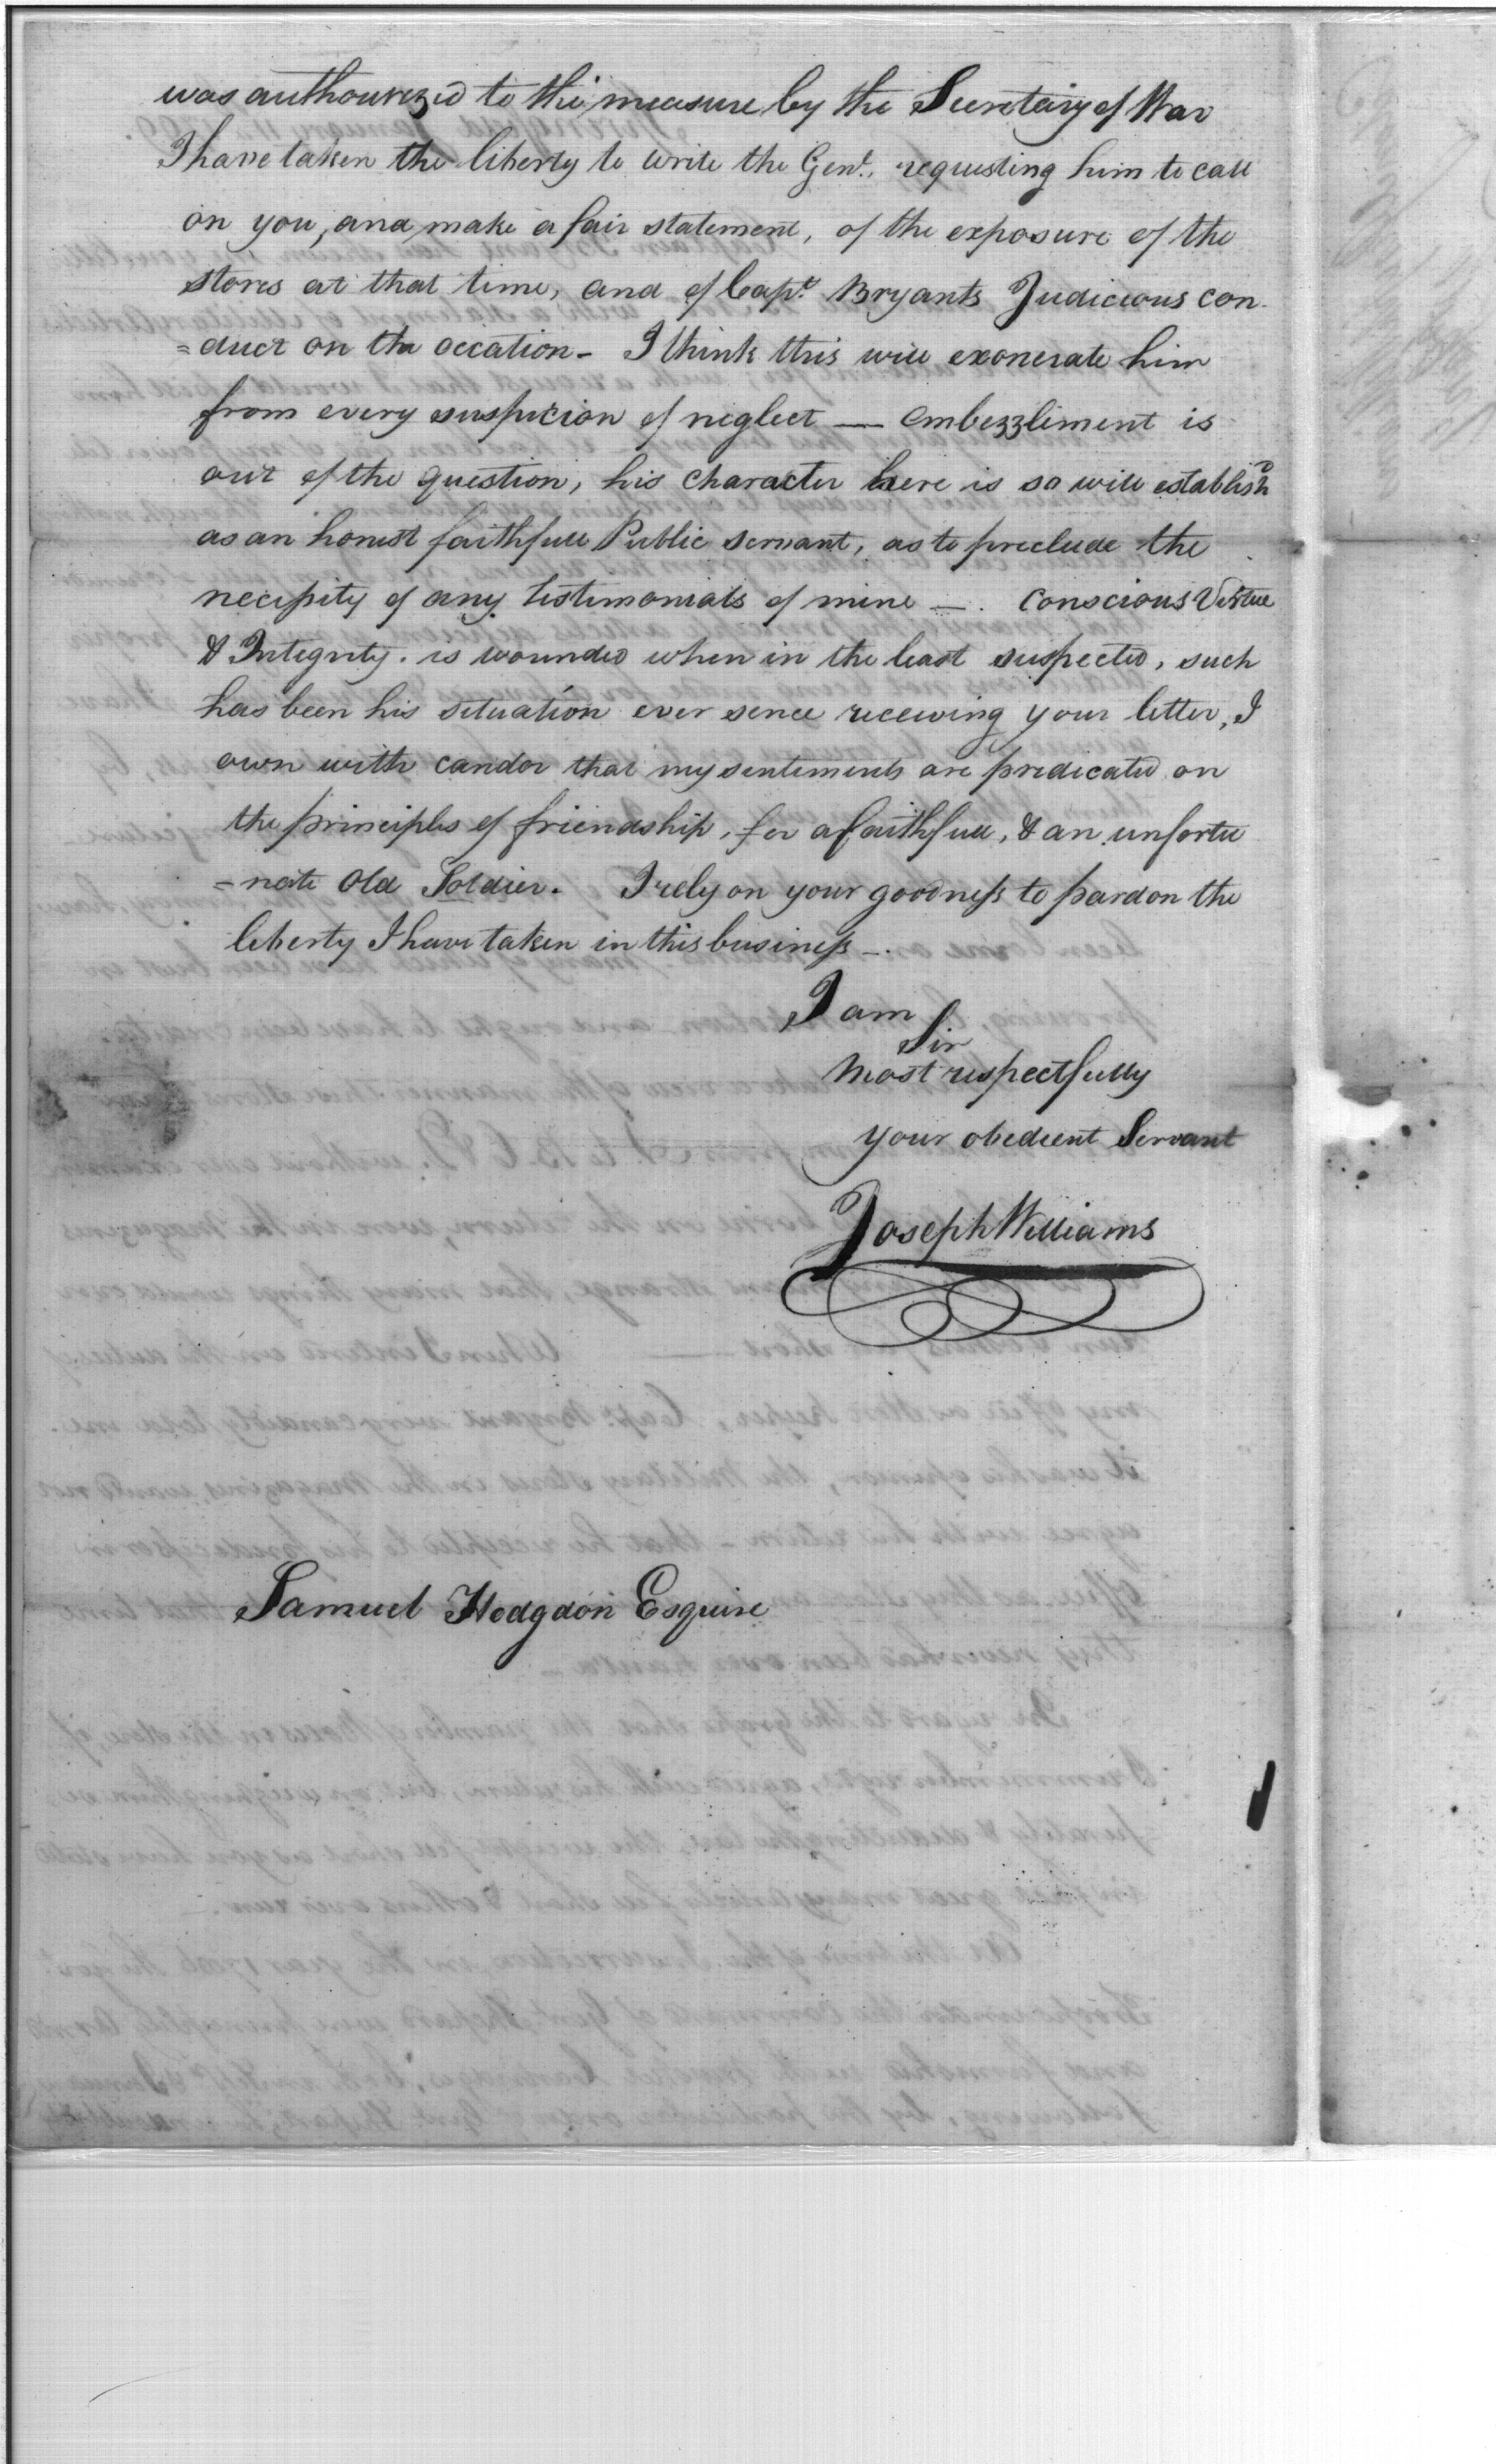 was authourized to the measure by the Secretary of War
I have taken the liberty to write the Genl. requesting him to call
on you, and make a fair statement, of the exposure of the
stores at that time, and of Capt. Bryants Judicious con
=duct on the occation - I think this will exonerate him
from every suspicion of neglect — embezzliment is
out of the question, his character here is so well establishd
as an honest faithfull Public servant, as to preclude the
necessity of any testimonials of mine —. Conscious Virtue
& Integrity. is wounded when in the least suspected, such
has been his situation ever sence receiving your letter, I
own with candor that my sentiments are predicated on
the principles of friendship, for a faithfull, & an unfortu
=nate Old Soldier. I rely on your goodness to pardon the
liberty I have taken in this business —.
I am
Sir
Most respectfully
your obedient Servant
Joseph Williams
Samuel Hodgdon Esquire